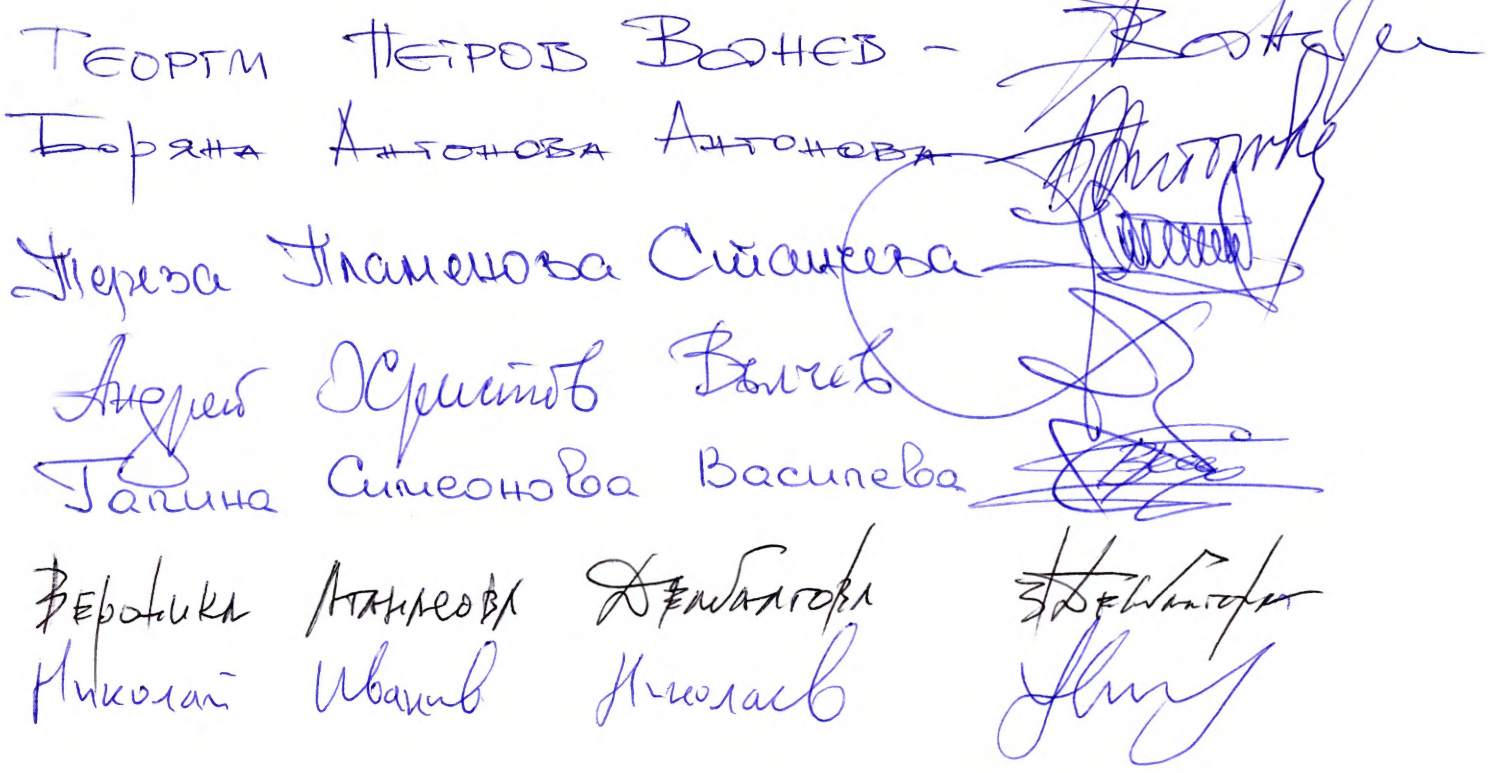 Георги Петров Вонев -
Боряна Антонова Антонова
Тереза Пламенова Станчева
Андрей Христов Вълчев
Галина Симеонова Василева
Вероника Атанасова Делибалтова
Николай Иванов Николаев